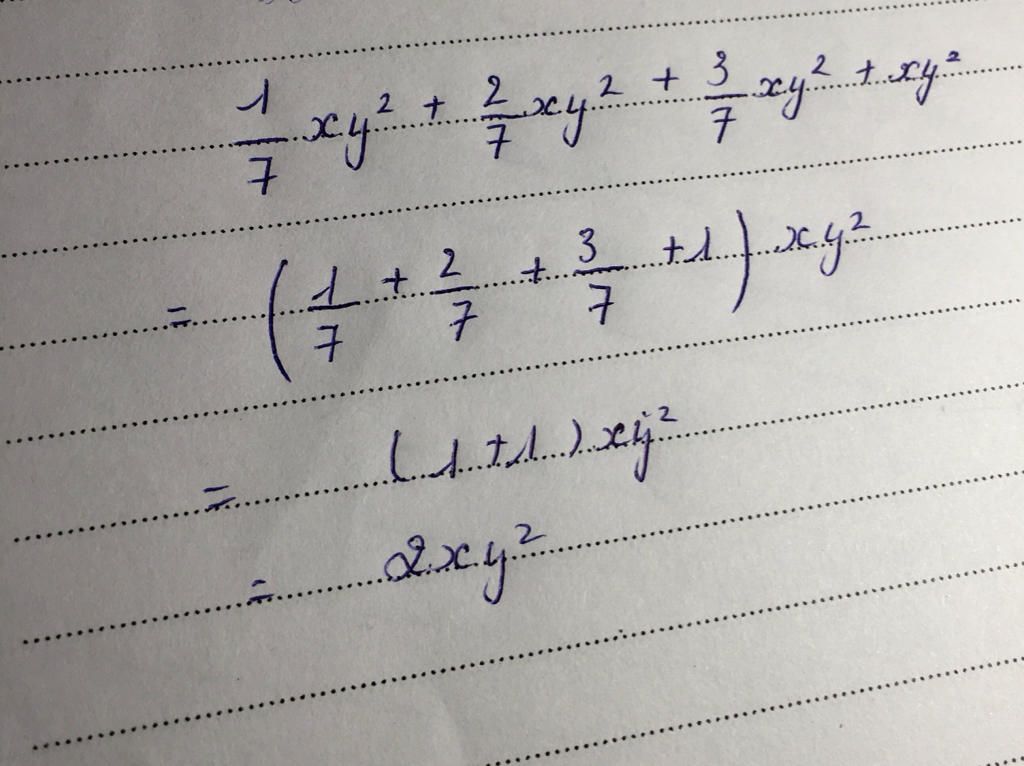 1/7 xy² + 2/7 xy² + 3/7 xy² + xy²
= (1/7 + 2/7 + 3/7 + 1) xy²
= (1 + 1) xy²
= 2xy²